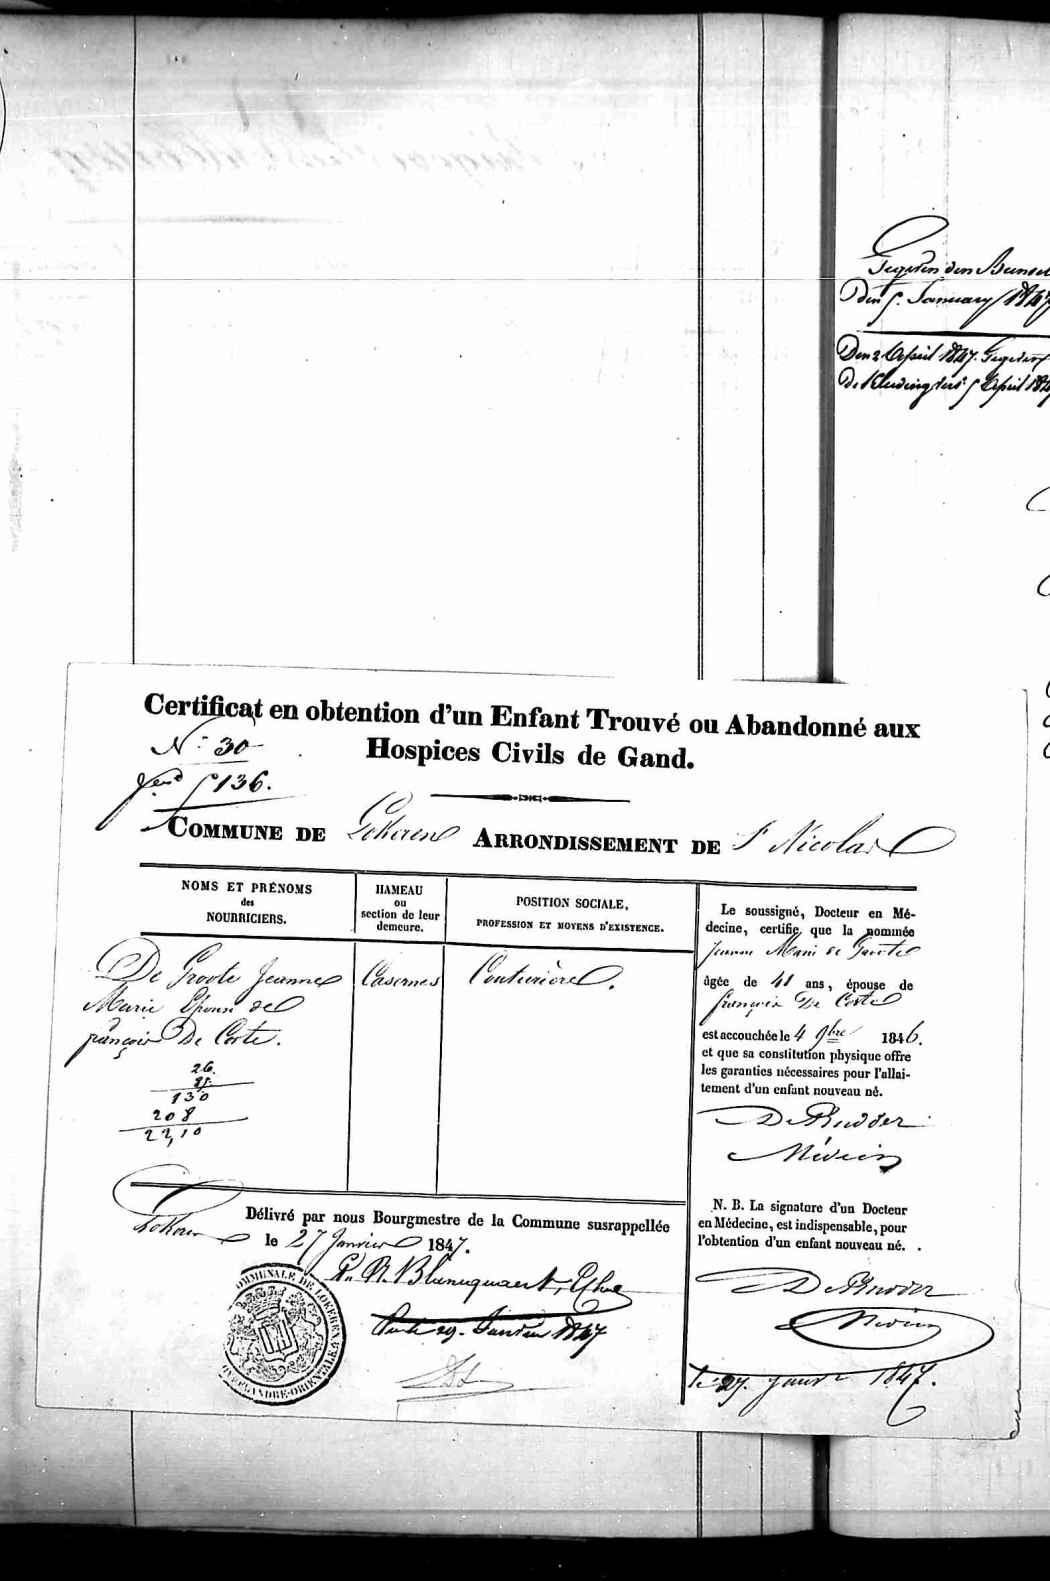 Certificat en obtention d'un Enfant Trouvé ou Abandonné aux
Hospices Civils de Gand.
N.º 30
5136.
COMMUNE DE Lokeren ARRONDISSEMENT DE St Nicolas
NOMS ET PRÉNOMS
des
NOURRICIERS.
HAMEAU
ou
section de leur
demeure.
POSITION SOCIALE,
PROFESSION ET MOYENS D'EXISTENCE.
De Groote Jeanne
Marie Epouse de
françois De Corte.
Casernes
Couturière.
26.
85.
130
208
22,10
Le soussigné, Docteur en Mé-
decine, certifie que la nommée
Jeanne Marie de Groote
âgée de 41 ans, épouse de
françois De Corte
est accouchée le 4 9bre 1846.
et que sa constitution physique offre
les garanties nécessaires pour l'allai-
tement d'un enfant nouveau né.
De Rudder
Médecin
N. B. La signature d'un Docteur
en Médecine, est indispensable, pour
l'obtention d'un enfant nouveau né.
De Rudder
Médecin
le 27. janvr 1847.
Délivré par nous Bourgmestre de la Commune susrappellée
Lokeren le 27 Janvier 1847.
29. Janvier 1847
COMMUNALE DE LOKEREN
FLANDRE-ORIENTALE
Gegeven den
Den 5. January 1847
Den 2 April 1847.
5 April